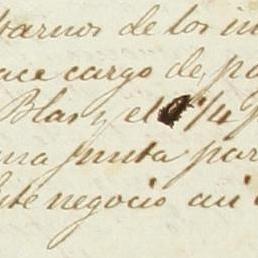 barnos de los in
ace cargo de po
Blas y el 1/4
una Junta par
este negocio asi